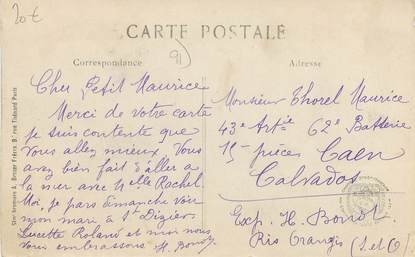 20€
CARTE POSTALE
91
Correspondance
Adresse
Cher Petit Maurice
Merci de votre carte
je suis contente que
vous allez mieux. Vous
avez bien fait d'aller a
la mer avec Melle Rachel.
Moi, je pars dimanche voir
mon mari à St Dizier.
Lucette Roland et moi nous
vous embrassons H. Bonot
Monsieur Thorel Maurice
43e Artie 62e Batterie
15e pièces Caen
Calvados
Exp. H. Bonot
Ris Orangis (S. et O.)
9, rue Thénard Paris